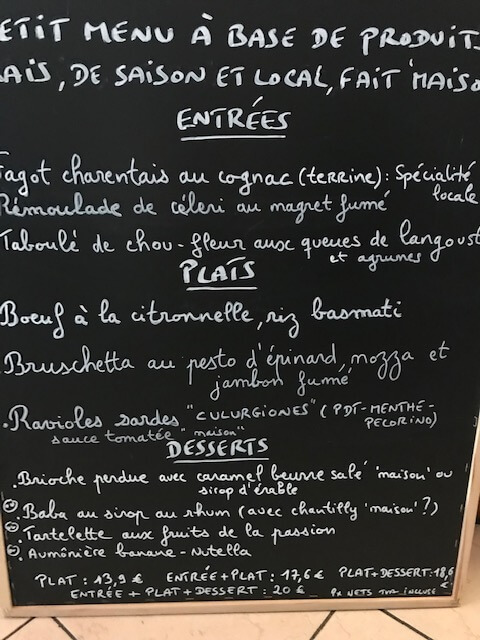 ETIT MENU À BASE DE PRODUITS
AIS, DE SAISON ET LOCAL, FAIT MAISO
ENTRÉES
Fagot charentais au cognac (terrine): Spécialité
locale
Rémoulade de céleri au magret fumé
Taboulé de chou-fleur aux queues de langoust
et agrumes
PLATS
Boeuf à la citronnelle, riz basmati
Bruschetta au pesto d'épinard, mozza et
jambon fumé
. Ravioles sardes "CULURGIONES" (PDT-MENTHE-
PECORINO)
sauce tomatée "maison"
DESSERTS
. Brioche perdue avec caramel beurre salé 'maison' ou
sirop d'érable
Baba au sirop au rhum (avec chantilly 'maison'?)
Tartelette aux fruits de la passion
. Aumônière banane-nutella
PLAT: 13,9 € ENTRÉE+PLAT: 17,6 € PLAT+DESSERT: 18,6
€
ENTRÉE + PLAT + DESSERT: 20 € Px NETS TVA INCLUSE